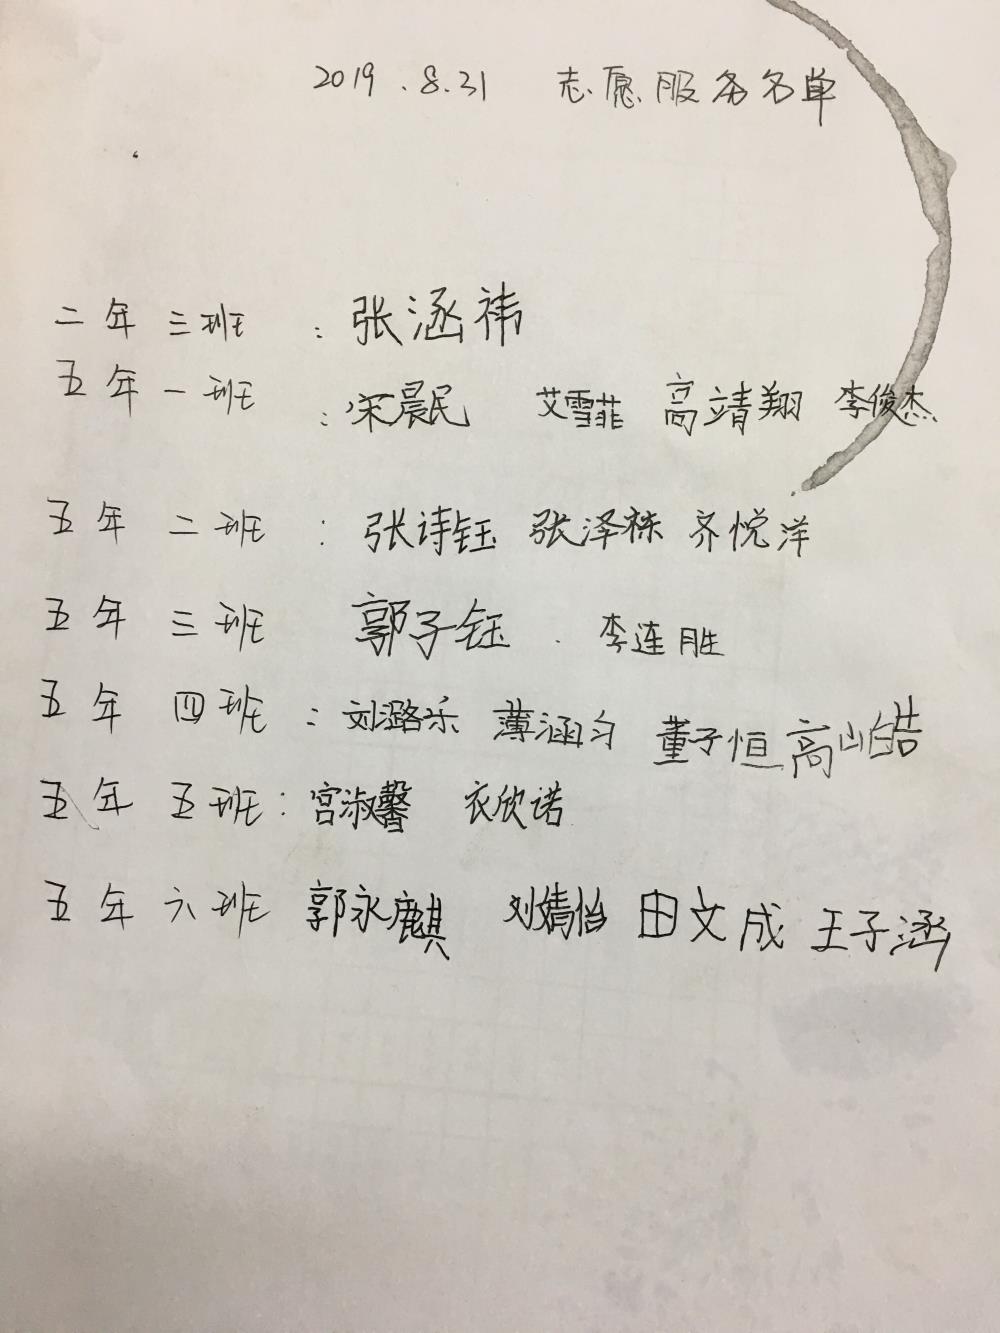 2019.8.31 志愿服务名单
二年三班：张涵祎
五年一班：宋晨民 艾雪菲 高靖翔 李俊杰
五年二班：张诗钰 张泽栋 齐悦洋
五年三班 郭子钰.李连胜
五年四班：刘潞乐 薄涵匀 董子恒 高山皓
五年五班：宫淑馨 衣欣诺
五年六班 郭永麒 刘婧怡 田文成 王子涵